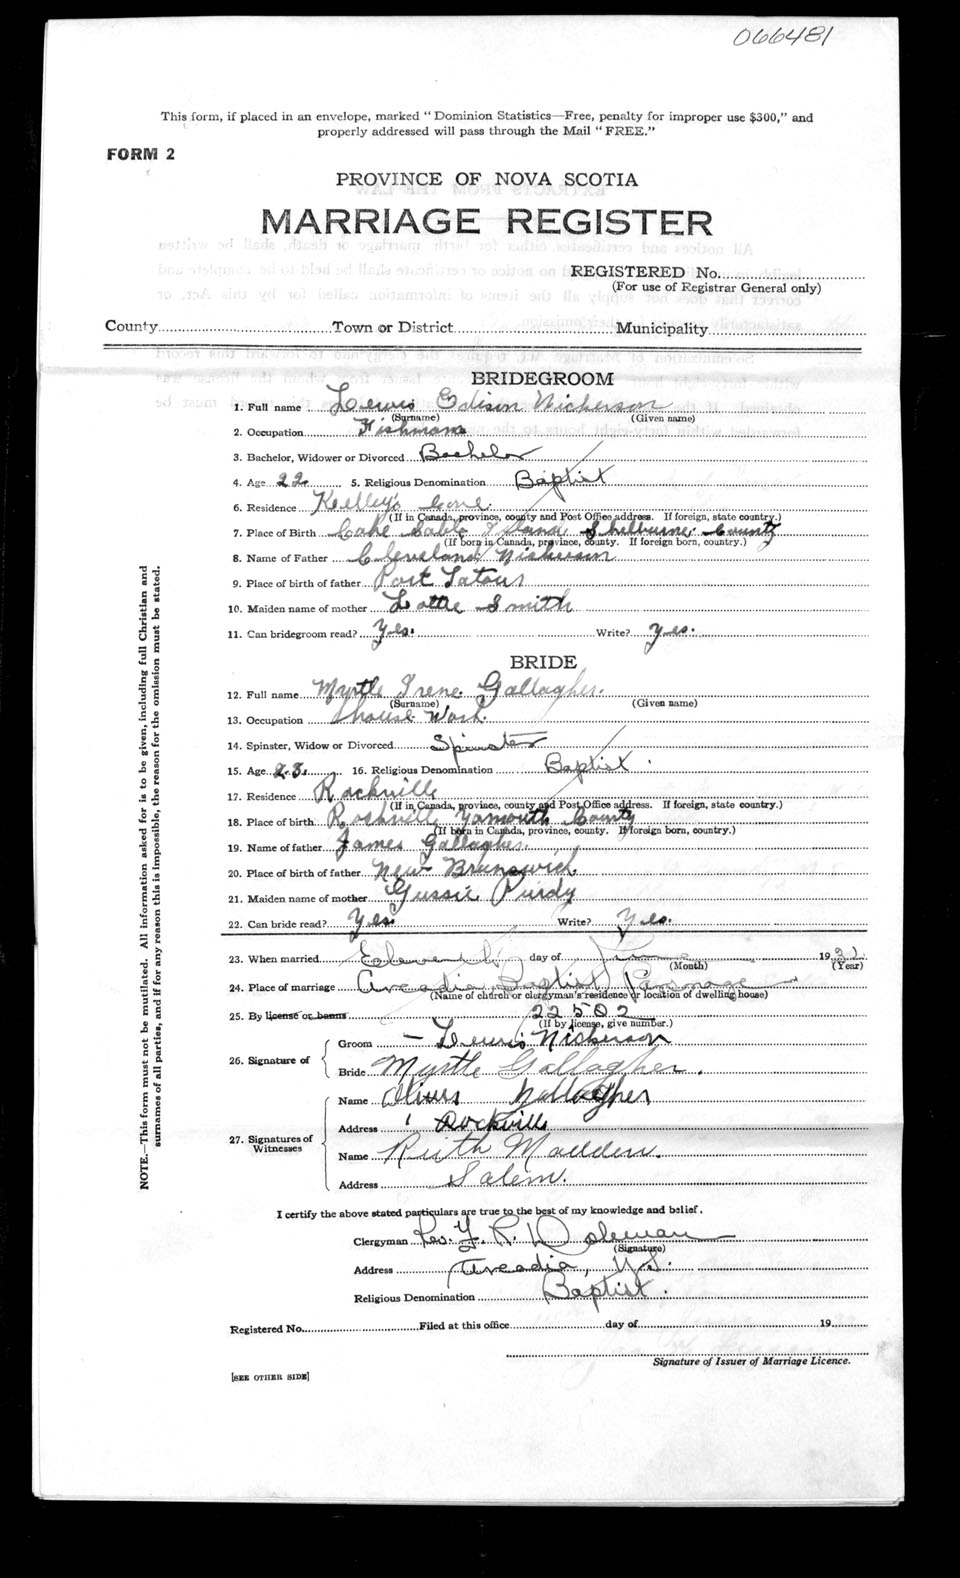 066481
This form, if placed in an envelope, marked " Dominion Statistics—Free, penalty for improper use $300," and
properly addressed will pass through the Mail " FREE."
FORM 2
PROVINCE OF NOVA SCOTIA
MARRIAGE REGISTER
REGISTERED No.
(For use of Registrar General only)
County Town or District Municipality
BRIDEGROOM
1. Full name Lewis Edison Nickerson
(Surname) (Given name)
2. Occupation Fishman
3. Bachelor, Widower or Divorced Bachelor
4. Age 22 5. Religious Denomination Baptist
6. Residence Kelley's Cove
(If in Canada, province, county and Post Office address. If foreign, state country.)
7. Place of Birth Cake Sable Island Shelburne County
(If born in Canada, province, county. If foreign born, country.)
8. Name of Father Cleveland Nickerson
9. Place of birth of father Port Latour
10. Maiden name of mother Lottie Smith
11. Can bridegroom read? Yes. Write? yes.
BRIDE
12. Full name Myrtle Irene Gallagher.
(Surname) (Given name)
13. Occupation house Work
14. Spinster, Widow or Divorced Spinster
15. Age 23 16. Religious Denomination Baptist
17. Residence Rockville
(If in Canada, province, county and Post Office address. If foreign, state country.)
18. Place of birth Rockville Yarmouth County
(If born in Canada, province, county. If foreign born, country.)
19. Name of father James Gallagher.
20. Place of birth of father New Brunswick
21. Maiden name of mother Gussie Purdy
22. Can bride read? Yes Write? Yes.
23. When married Eleventh day of 19
(Month) (Year)
24. Place of marriage Arcadia Baptist Parsonage
(Name of church or clergyman's residence or location of dwelling house)
25. By license or banns 22502
(If by license, give number.)
26. Signature of Groom — Lewis Nickerson
Bride Myrtle Gallagher.
27. Signatures of Witnesses Name Gallagher
Address Rockville
Name Ruth Madden.
Address Salem.
I certify the above stated particulars are true to the best of my knowledge and belief.
Clergyman Rev. R.
(Signature)
Address Arcadia, N.S.
Religious Denomination Baptist.
Registered No. Filed at this office day of 19
Signature of Issuer of Marriage Licence.
[SEE OTHER SIDE]
NOTE.—This form must not be mutilated. All information asked for is to be given, including full Christian and
surnames of all parties, and if for any reason this is impossible, the reason for the omission must be stated.